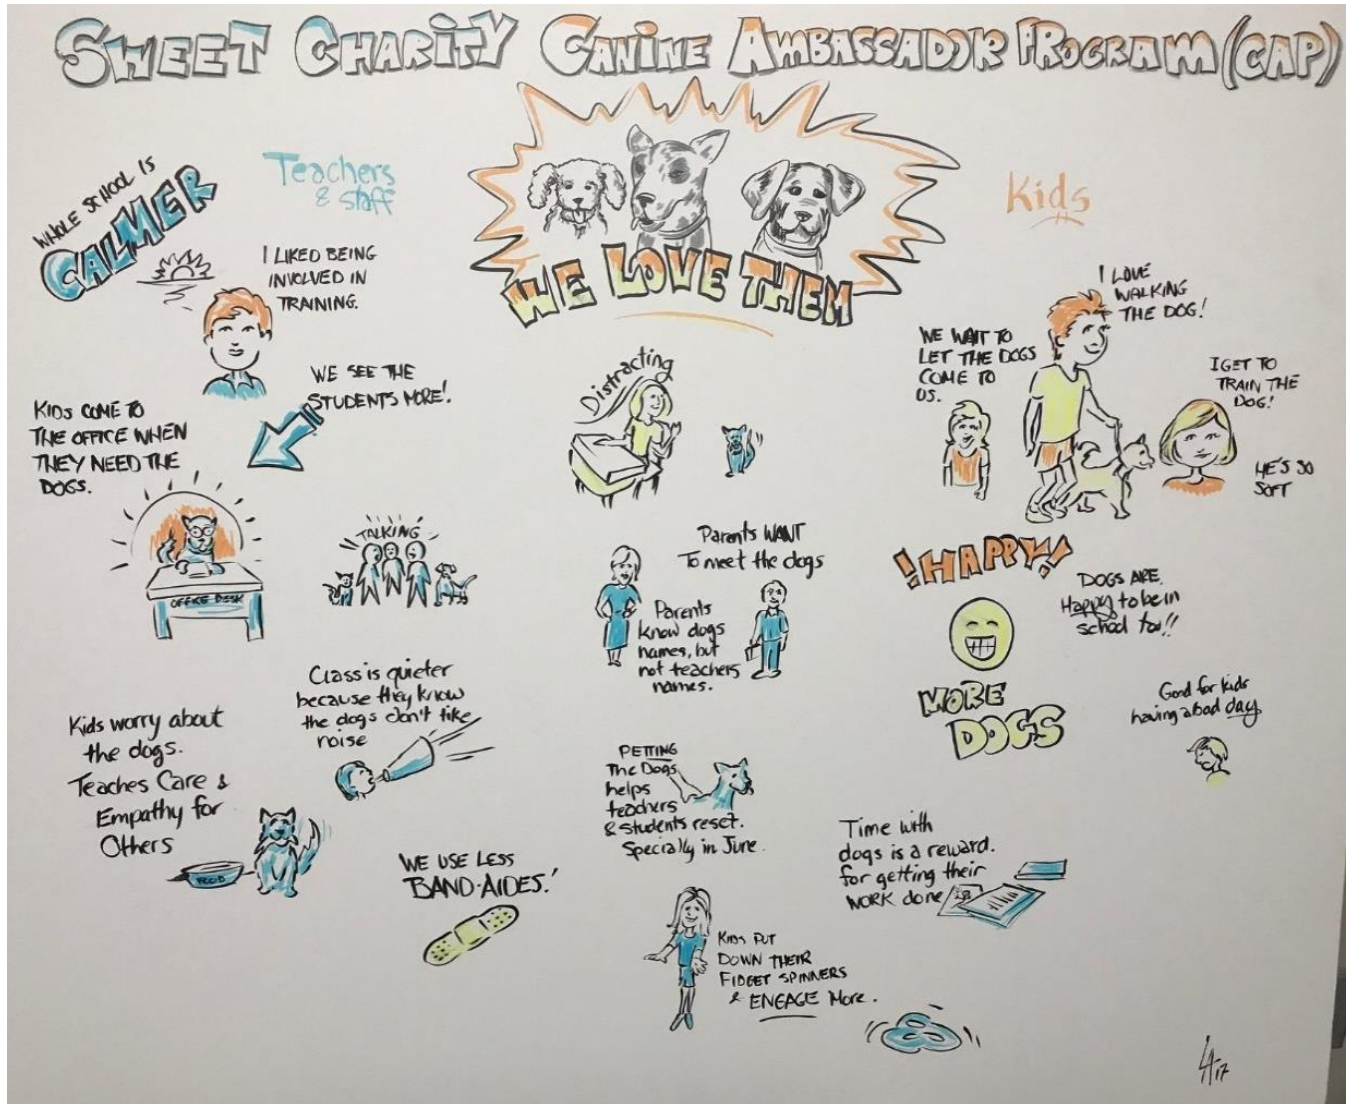 SWEET CHARITY CANINE AMBASSADOR PROGRAM (CAP)
WHOLE SCHOOL IS
CALMER
Teachers
& staff
I LIKED BEING
INVOLVED IN
TRAINING.
WE SEE THE
STUDENTS MORE!
KIDS COME TO
THE OFFICE WHEN
THEY NEED THE
DOGS.
OFFICE DESK
TALKING
Class is quieter
because they know
the dogs don't like
noise
Kids worry about
the dogs.
Teaches Care &
Empathy for
Others
FOOD
WE USE LESS
BAND-AIDES!
WE LOVE THEM
Distracting
Parents WANT
To meet the dogs
Parents
know dogs
names, but
not teachers
names.
PETTING
The Dogs
helps
teachers
& students reset.
Specially in June.
KIDS PUT
DOWN THEIR
FIDGET SPINNERS
& ENGAGE More.
Kids
I LOVE
WALKING
THE DOG!
WE WAIT TO
LET THE DOGS
COME TO
US.
I GET TO
TRAIN THE
DOG!
HE'S SO
SOFT
!HAPPY!
DOGS ARE
Happy to be in
school too!!
MORE
DOGS
Good for kids
having a bad day
Time with
dogs is a reward.
for getting their
WORK done
LA17